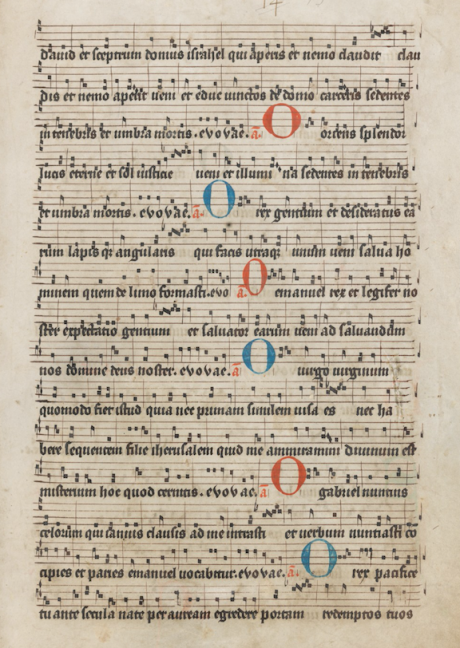 17
dauid et sceptrum domus israhel qui aperis et nemo claudit clau
dis et nemo aperit ueni et educ uinctos de domo carceris sedentes
in tenebris et umbra mortis. evovae. a. O oriens splendor
lucis eterne et sol iusticie ueni et illumi na sedentes in tenebris
et umbra mortis. evovae. a. O rex gentium et desideratus ea
rum lapis qi angularis qui facis utraq; unum ueni salua ho
minem quem de limo formasti. evo a. O emanuel rex et legifer no
ster expectatio gentium et saluator earum ueni ad saluandum
nos domine deus noster. evovae. a. O uirgo uirginum
quomodo fiet istud quia nec primam similem uisa es nec ha
bere sequentem filie iherusalem quid me ammiramini diuinum est
misterium hoc quod cernitis. evovae. a. O gabriel nuntius
celorum qui ianuis clausis ad me intrasti et uerbum nuntiasti co
cipies et paries emanuel vocabitur. evovae. a. O rex pacifice
tu ante secula nate per auream egredere portam redemptos tuos